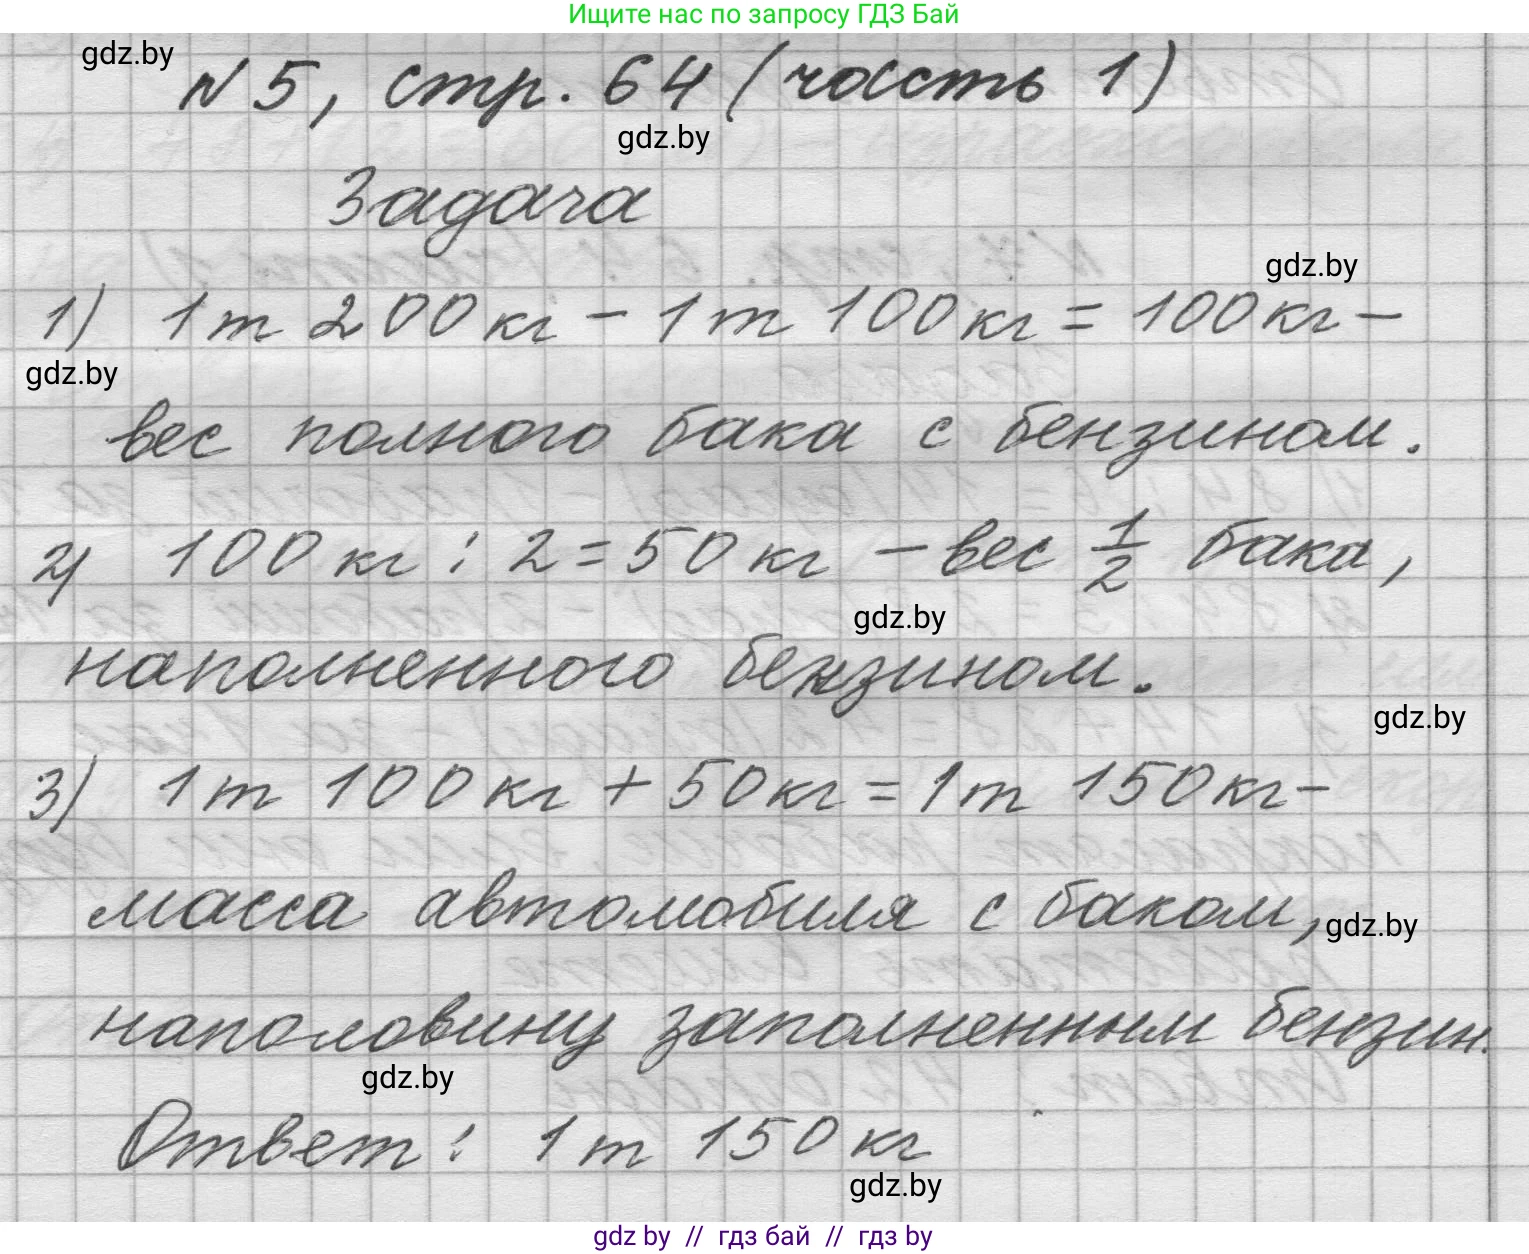 Ищите нас по запросу ГДЗ Бай
gdz.by
N 5, стр. 64 (часть 1)
gdz.by
Задача
gdz.by
1) 1 т 200 кг – 1 т 100 кг = 100 кг –
gdz.by
вес полного бака с бензином.
2) 100 кг : 2 = 50 кг – вес 1/2 бака,
gdz.by
наполненного бензином.
gdz.by
3) 1 т 100 кг + 50 кг = 1 т 150 кг –
масса автомобиля с баком,
gdz.by
наполовину заполненным бензин.
gdz.by
Ответ: 1 т 150 кг
gdz.by
gdz by // гдз бай // гдз by